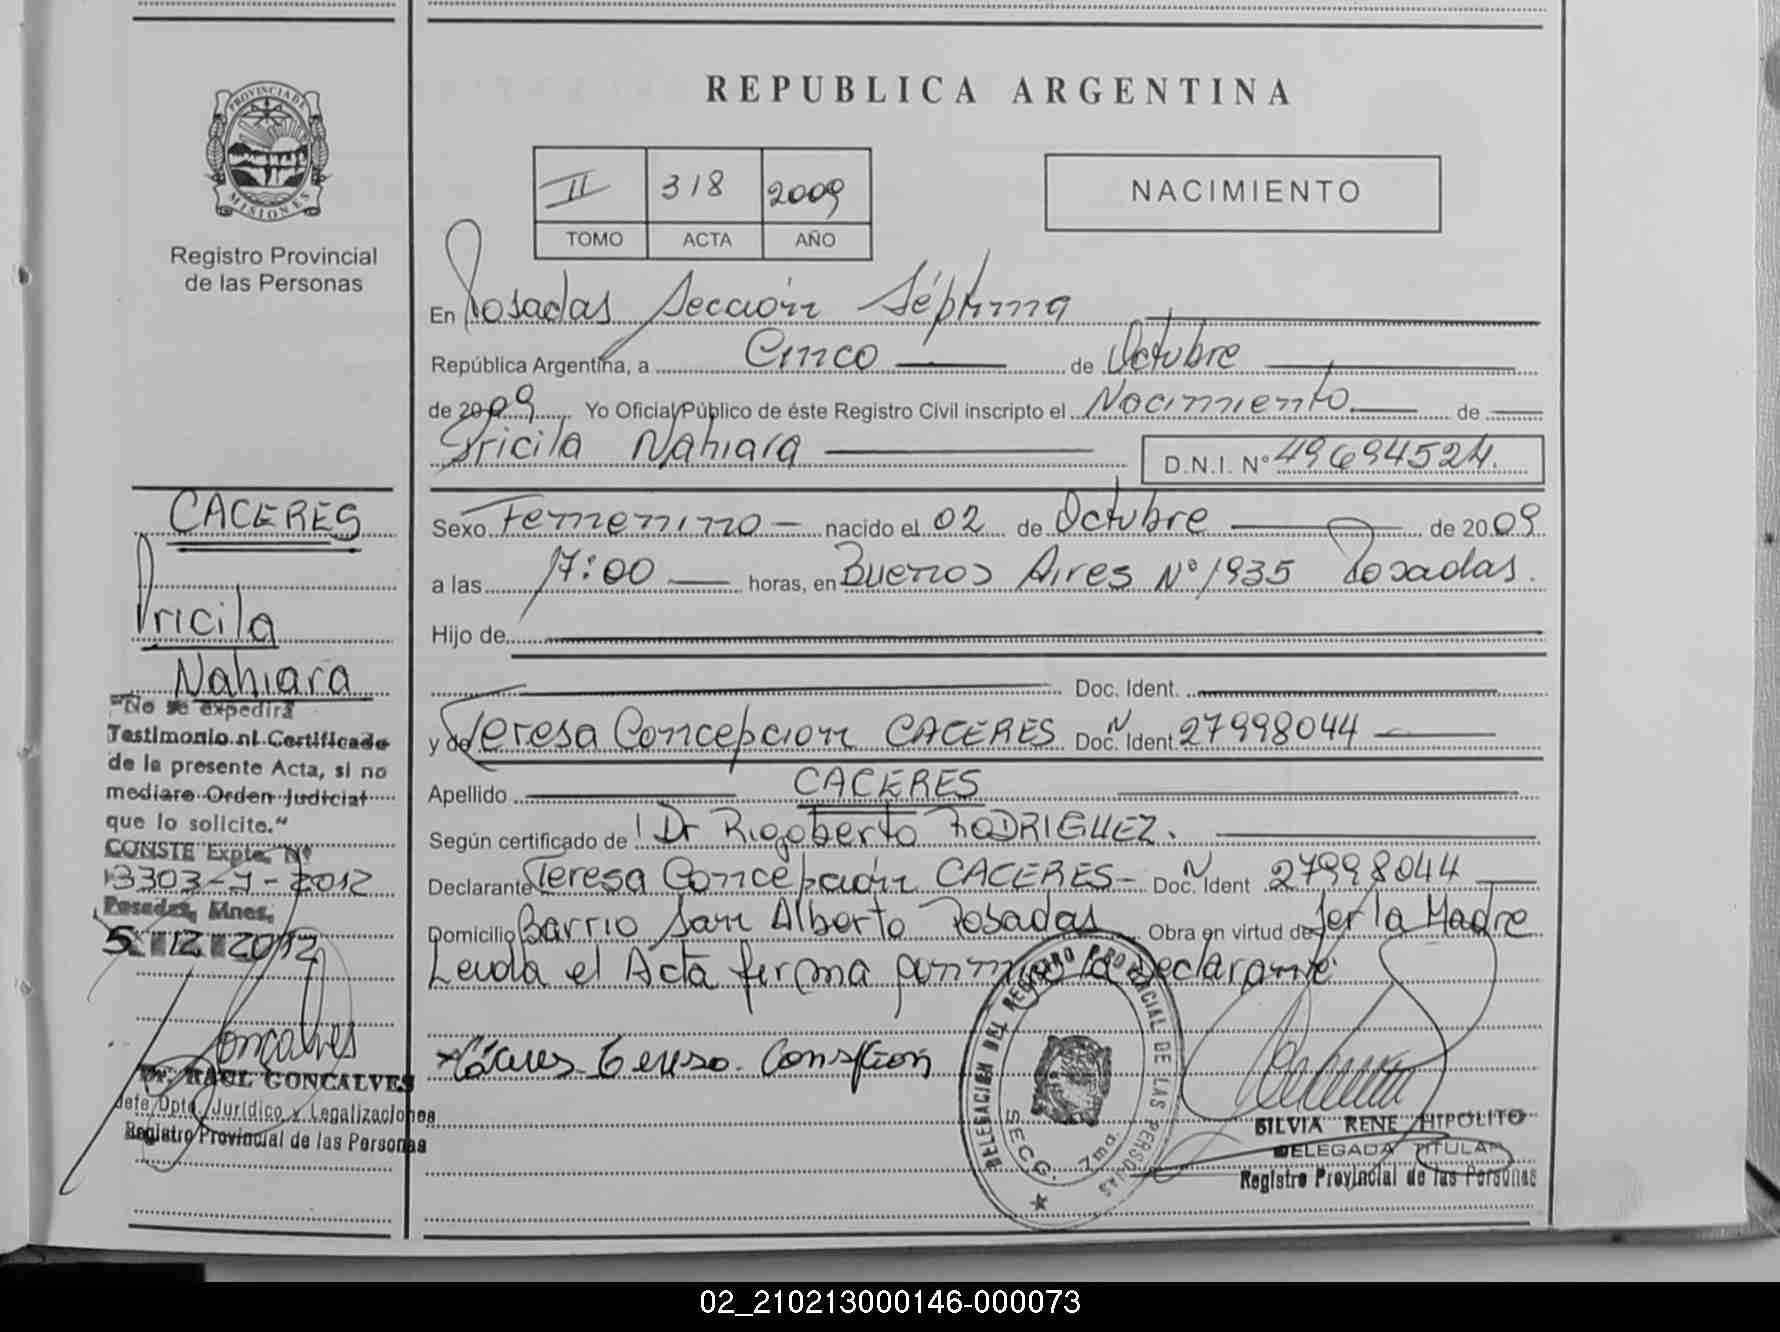 REPUBLICA ARGENTINA
PROVINCIA DE
MISIONES
Registro Provincial
de las Personas
II 318 2009
TOMO ACTA AÑO
NACIMIENTO
En Posadas Sección Séptima
República Argentina, a Cinco de Octubre
de 2009 Yo Oficial Público de éste Registro Civil inscripto el Nacimiento de
Pricila Nahiara D.N.I. Nº 49694524.
CACERES
Pricila
Nahiara
Sexo Femenino nacido el 02 de Octubre de 2009
a las 17:00 horas, en Buenos Aires Nº 1935 Posadas.
Hijo de
Doc. Ident.
y de Teresa Concepcion CACERES Doc. N Ident 27998044
Apellido CACERES
Según certificado de Dr Rigoberto RODRIGUEZ.
Declarante Teresa Concepción CACERES - Doc. N Ident 27998044
Domicilio Barrio San Alberto Posadas Obra en virtud de Ser la Madre
Leida el Acta firma la Declarante
"No se expedirá
Testimonio ni Certificado
de la presente Acta, si no
mediare Orden Judicial
que lo solicite."
CONSTE Expte. Nº
3303-Y-2012
Posadas, Mnes.
5 12 2012
Goncalves
Dr. RAUL GONCALVES
Jefe Dpto. Jurídico y Legalizaciones
Registro Provincial de las Personas
DELEGACIÓN DEL REGISTRO PROVINCIAL DE LAS PERSONAS
SECC. 7ma.
SILVIA RENE HIPOLITO
DELEGADA TITULAR
Registro Provincial de las Personas
02_210213000146-000073